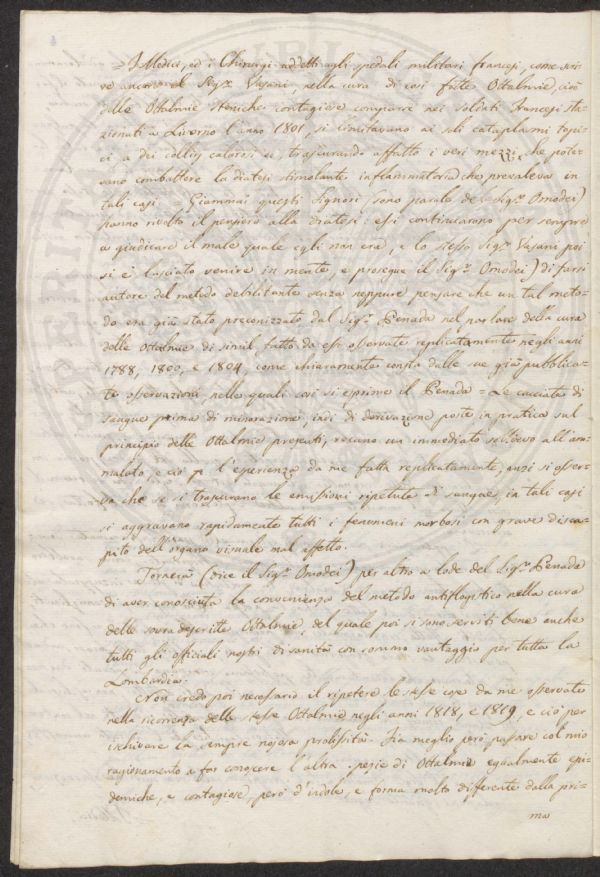 I Medici, ed i Chirurgi addetti agli spedali militari francesi, come scri-
ve ancora il Sigr. Vasani, nella cura di così fatte Ottalmie, cioè
delle Ottalmie steniche contagiose comparse nei soldati Francesi sta-
zionati a Livorno l'anno 1801, si limitavano ai soli cataplasmi topi-
ci a dei colliri calorosi trascurando affatto i veri mezzi, che pote-
vano combattere la diatesi stimolante infiammatoria che prevaleva in
tali casi. Giammai questi Signori (sono parole del Sigr. Omodei)
hanno rivolto il pensiero alla diatesi, essi continuarono per sempre
a giudicare il male quale egli non era, e lo stesso Sigr. Vasani poi
si è lasciato venire in mente (e prosegue il Sigr. Omodei) di farsi
autore del metodo debilitante senza neppure pensare che un tal meto-
do era già stato preconizzato dal Sigr. Penada nel parlare della cura
delle Ottalmie di simil fatto da esso osservate replicatamente negli anni
1788, 1800, e 1804, come chiaramente consta dalle sue già pubblica-
te osservazioni, nelle quali così si esprime il Penada = Le cacciate di
sangue prima di minorazione, indi di derivazione poste in pratica sul
principio delle Ottalmie presenti, recano un immediato sollievo all'am-
malato, e ciò p. l'esperienza da me fatta replicatamente, anzi si osser-
va che se si trascurano le emissioni ripetute di sangue, in tali casi
si aggravano rapidamente tutti i fenomeni morbosi con grave disca-
pito dell'organo visuale mal affetto.
Tornerà (dice il Sigr. Omodei) per altro a lode del Sigr. Penada
di aver conosciuta la convenienza del metodo antiflogistico nella cura
delle sovradescritte Ottalmie, del quale poi si sono serviti bene anche
tutti gli officiali nostri di sanità con sommo vantaggio per tutta la
Lombardia.
Non credo poi necessario il ripetere le stesse cose da me osservate
nella ricorrenza delle stesse Ottalmie negli anni 1818, e 1819, e ciò per
ischivare la sempre nojosa prolissità. Fia meglio però passare col mio
ragionamento a far conoscere l'altra specie di Ottalmie egualmente epi-
demiche, e contagiose, però d'indole, e forma molto differente dalla pri-
ma